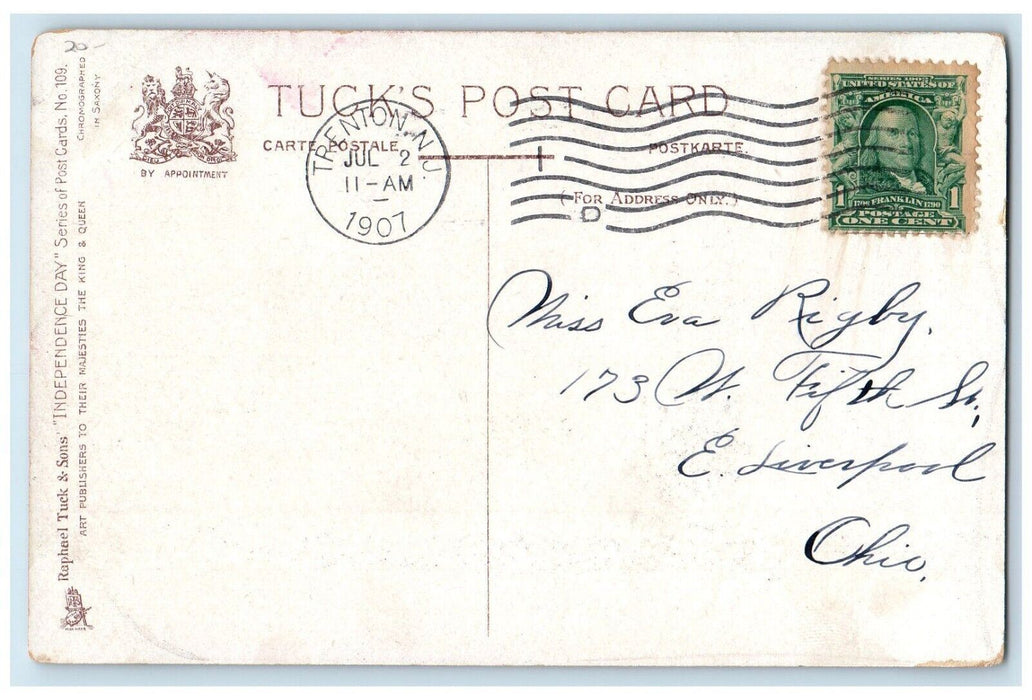 20-
Raphael Tuck & Sons' "INDEPENDENCE DAY" Series of Post Cards. No. 109.
ART PUBLISHERS TO THEIR MAJESTIES THE KING & QUEEN
CHROMOGRAPHED
IN SAXONY
BY APPOINTMENT
TUCK'S POST CARD
CARTE POSTALE.
POSTKARTE.
(FOR ADDRESS ONLY.)
TRENTON, N.J.
JUL 2
11-AM
1907
D
SERIES 1902
UNITED STATES OF
AMERICA
1 1706 FRANKLIN 1790 1
POSTAGE
ONE CENT
Miss Eva Rigby.
173 W. Fifth St.,
E. Liverpool
Ohio.